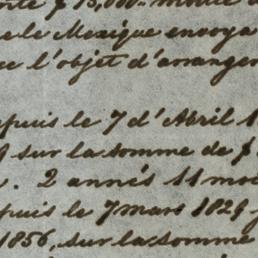 $ 15,000.. 
le Mexique envoya
l'objet d'arrangem
puis le 7 d'Abril 1
sur la somme de $
. 2 annés 11 mo
puis le 7 mars 1829
1856, sur la somme